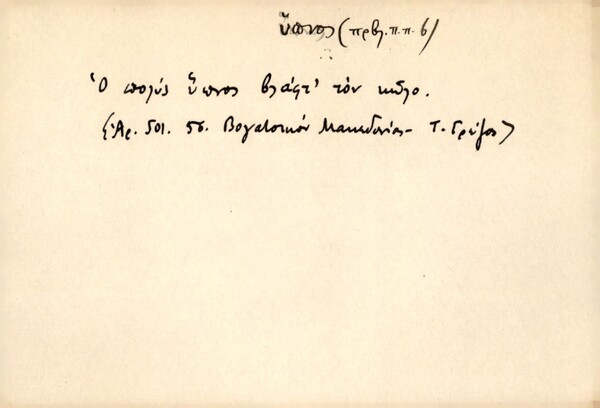 ὕπνος (πρβλ. π.π. 6)
Ὁ πολύς ὕπνος βλάφτ' τὸν
(Ἀρ. 501. 56. Βογατσικόν Μακεδονίας - Τ. Γρίζος)